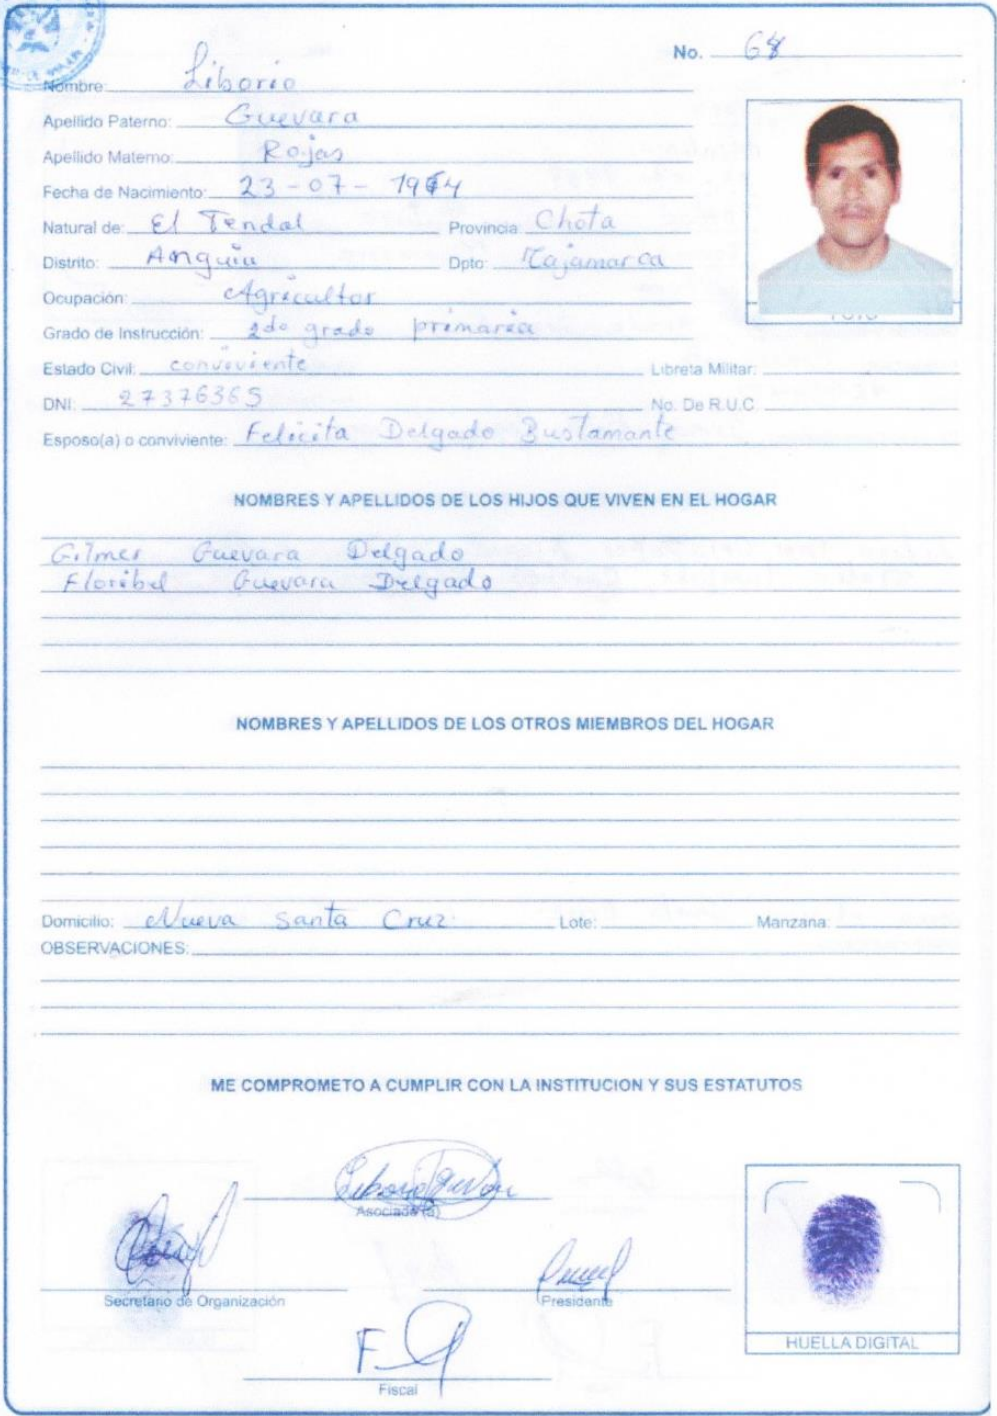 No. 68
Nombre: Liborio
Apellido Paterno: Guevara
Apellido Materno: Rojas
Fecha de Nacimiento: 23-07-1974
Natural de: El Tendal Provincia: Chota
Distrito: Anguia Dpto: Cajamarca
Ocupación: Agricultor
FOTO
Grado de Instrucción: 2do grado primaria
Estado Civil: conviviente Libreta Militar:
DNI: 27376365 No. De R.U.C.
Esposo(a) o conviviente: Felicita Delgado Bustamante
NOMBRES Y APELLIDOS DE LOS HIJOS QUE VIVEN EN EL HOGAR
Gilmer Guevara Delgado
Floribel Guevara Delgado
NOMBRES Y APELLIDOS DE LOS OTROS MIEMBROS DEL HOGAR
Domicilio: Nueva Santa Cruz Lote: Manzana:
OBSERVACIONES:
ME COMPROMETO A CUMPLIR CON LA INSTITUCION Y SUS ESTATUTOS
Asociado (a)
Secretario de Organización
Presidente
HUELLA DIGITAL
Fiscal